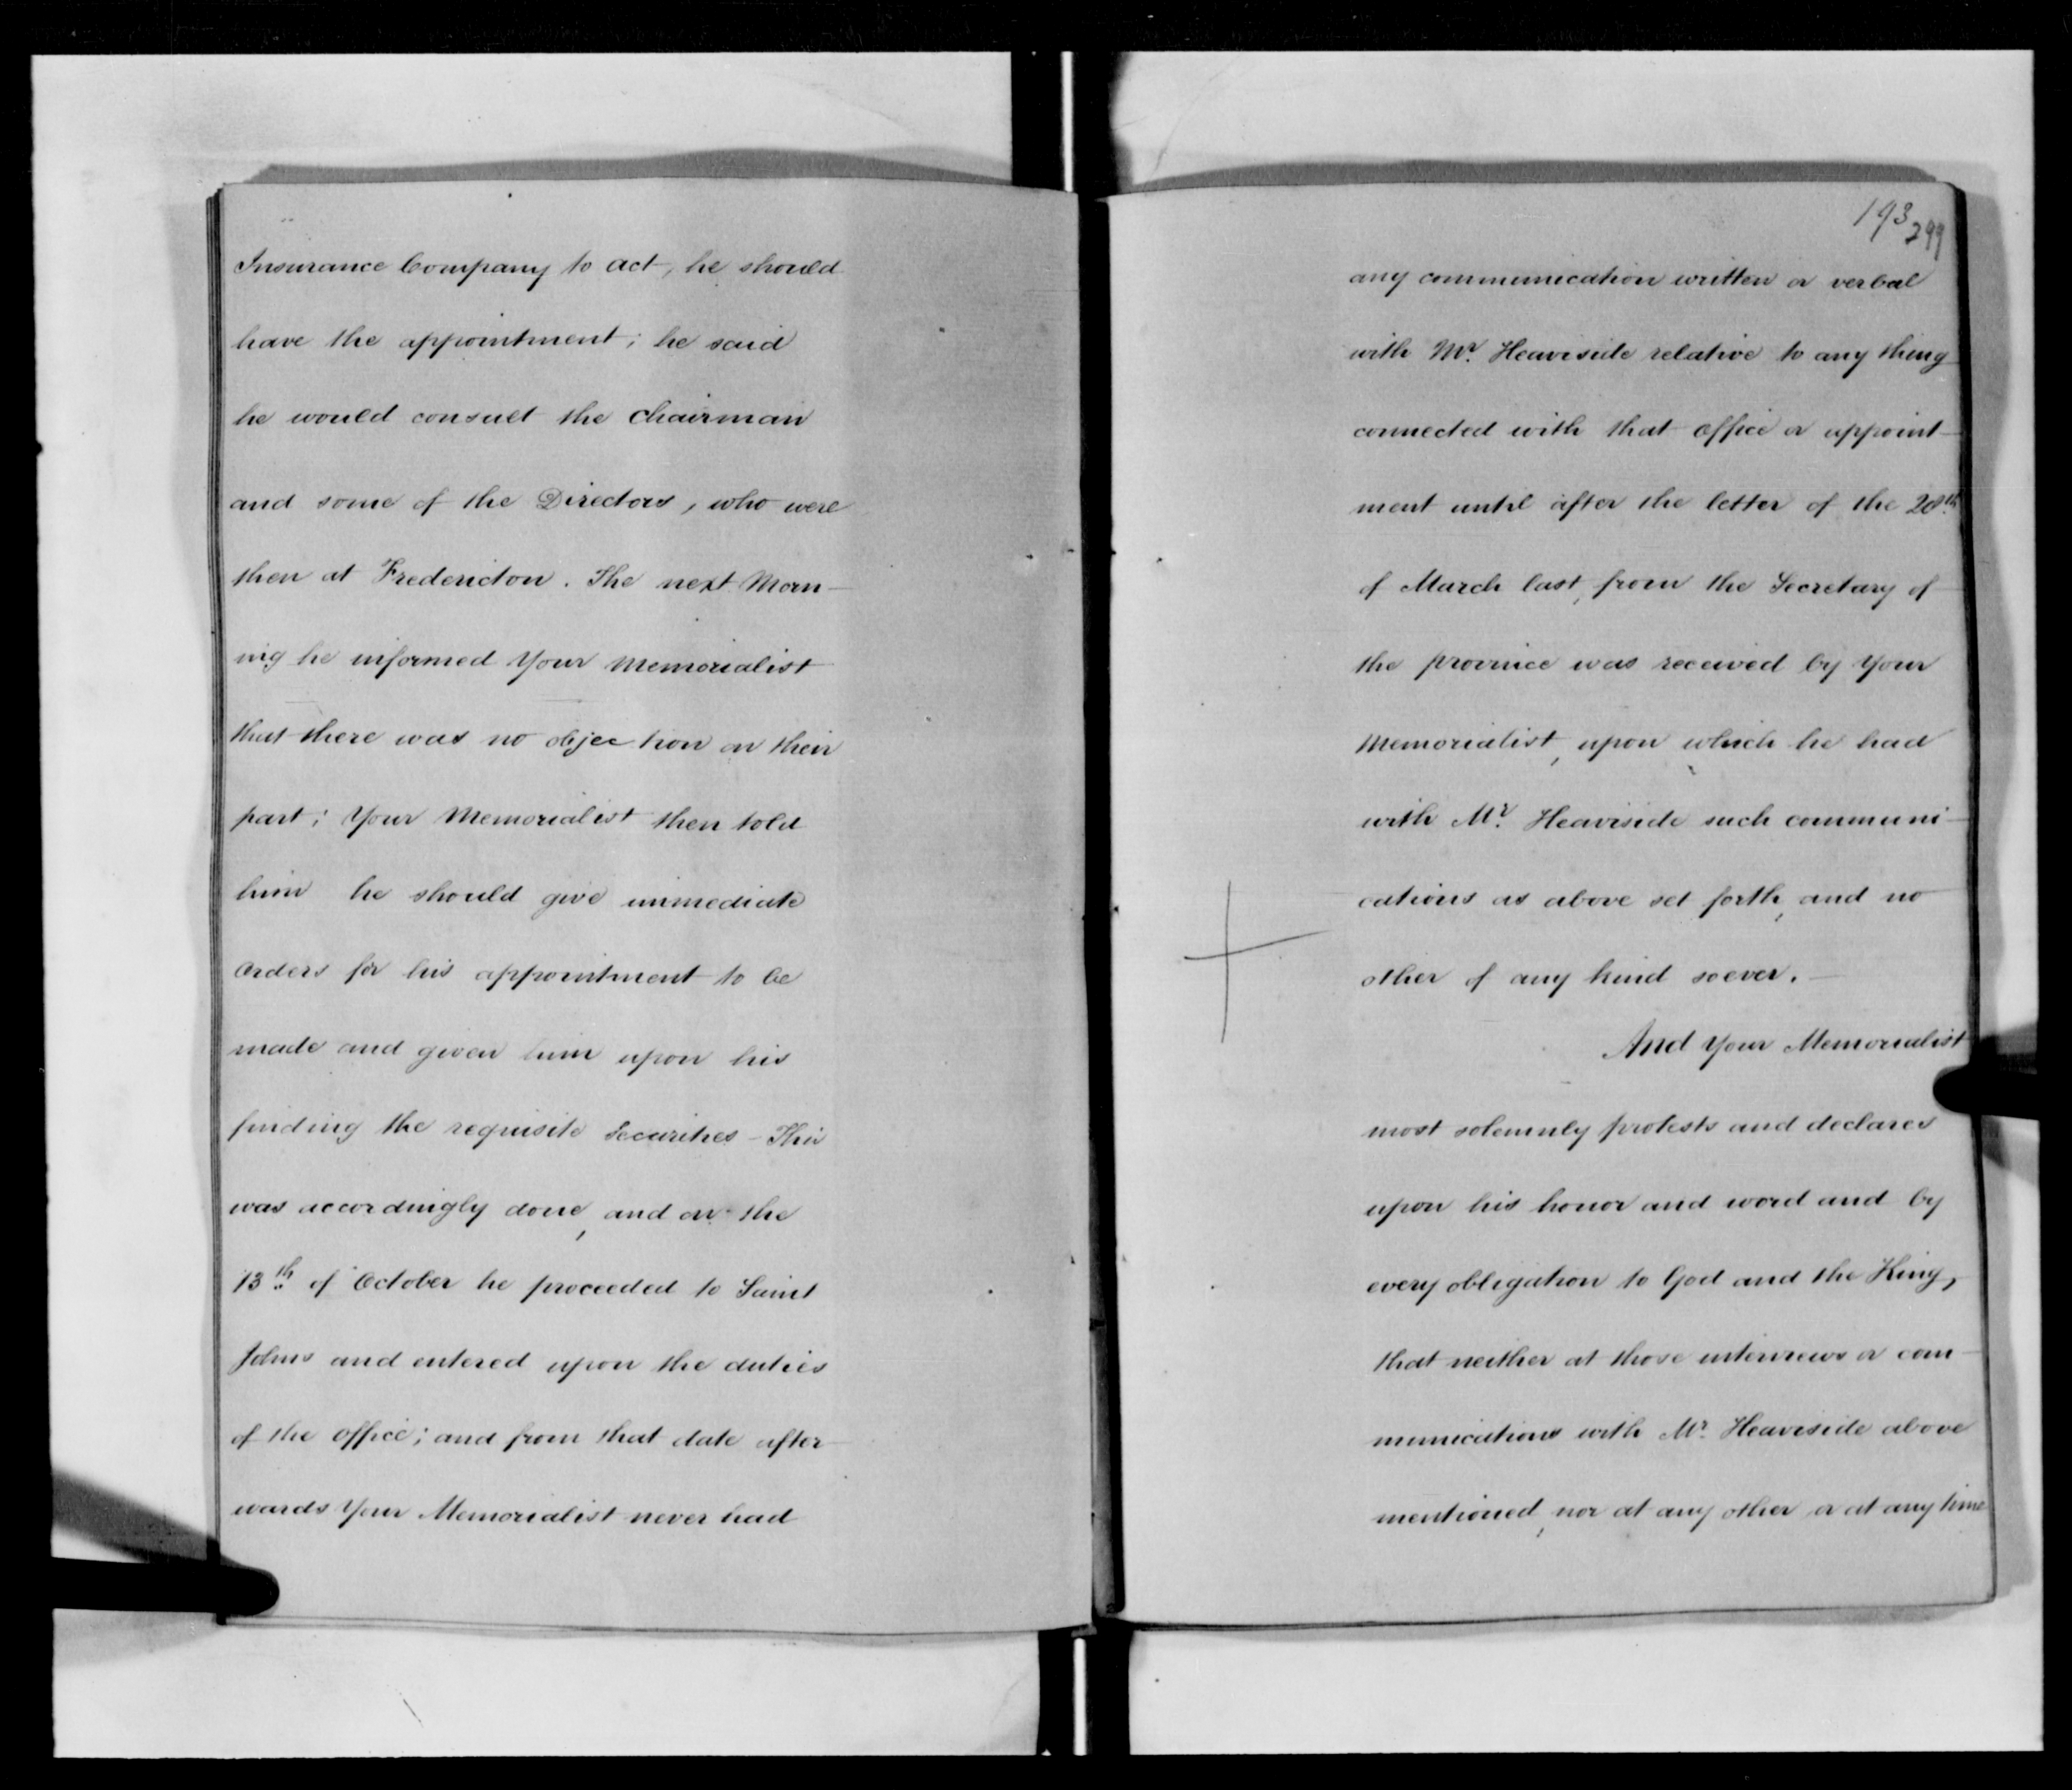 Insurance Company to act, he should
have the appointment; he said
he would consult the Chairman
and some of the Directors, who were
then at Fredericton. The next Morn-
ing he informed Your Memorialist
that there was no objection on their
part; Your Memorialist then told
him he should give immediate
orders for his appointment to be
made and given him upon his
finding the requisite Securities - This
was accordingly done, and on the
13th of October he proceeded to Saint
Johns and entered upon the duties
of the Office; and from that date after-
wards Your Memorialist never had
193
299
any communication written or verbal
with Mr. Heaviside relative to any thing
connected with that Office or appoint-
ment until after the letter of the 28th
of March last, from the Secretary of
the province was received by Your
Memorialist, upon which he had
with Mr. Heaviside such communi-
cations as above set forth, and no
other of any kind soever. -
And Your Memorialist
most solemnly protests and declares
upon his honor and word and by
every obligation to God and the King,
that neither at those interviews or com-
munications with Mr. Heaviside above
mentioned, nor at any other or at any time